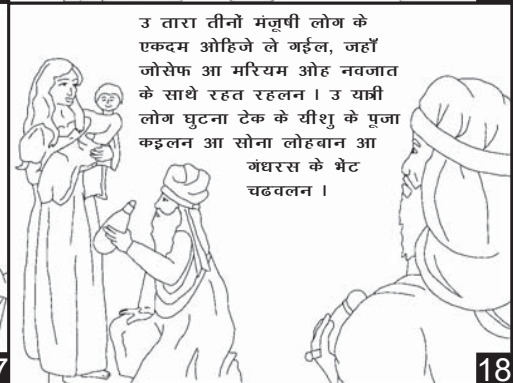 उ तारा तीनों मंजूषी लोग के
एकदम ओहिजे ले गईल, जहाँ
जोसेफ आ मरियम ओह नवजात
के साथे रहत रहलन । उ यात्री
लोग घुटना टेक के यीशु के पूजा
कइलन आ सोना लोहबान आ
गंधरस के भेंट
चढवलन ।
7
18